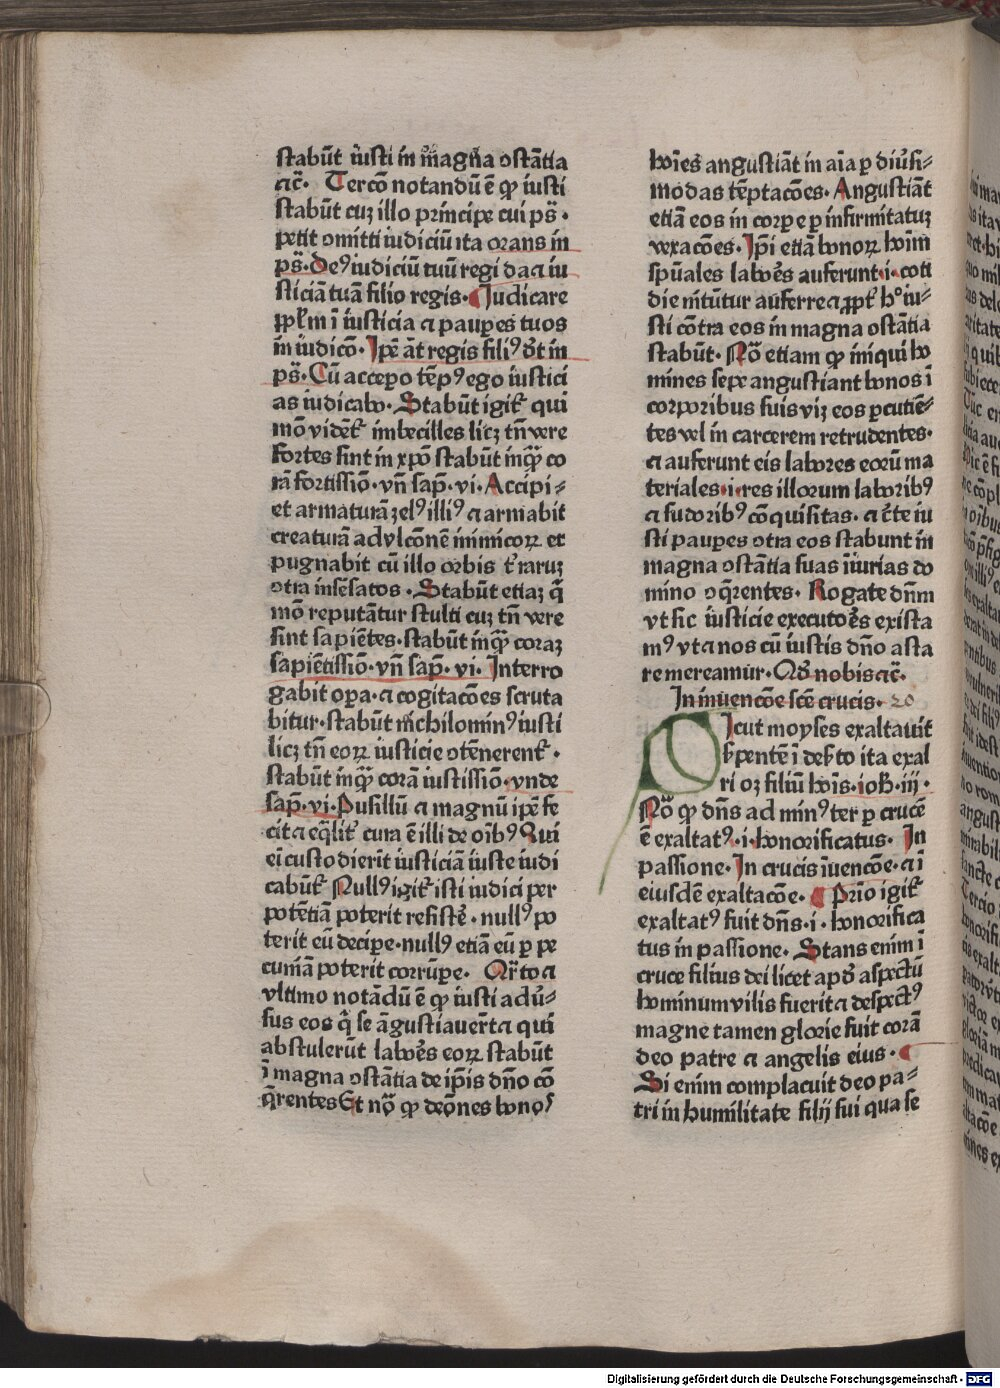 stabūt iusti in magna ↄstātia
⁊c̄. Tercō notandū ē ꝙ iusti
stabūt cuꝫ illo principe cui ps̄.
petit omitti iudiciū ita orans in
ps̄. Deꝰ iudiciū tuū regi da ⁊ iu
sticiā tuā filio regis. Judicare
pp̄lm ī iusticia ⁊ paupes tuos
in iudicō. Ip̄e āt regis filiꝰ dr̄t in
ps̄. Cū accepo tēpꝰ ego iustici
as iudicabo. Stabūt igit̄ qui
mō vident̄ imbecilles licꝫ tn̄ vere
fortes sint in xp̄o stabūt inꝙ̄ co
rā fortissīo. vn̄ sap̄. vi. Accipi⸗
et armaturā zelꝰ illiꝰ ⁊ armabit
creaturā ad vlcōnē inimicoꝝ et
pugnabit cū illo orbis t̄raruꝫ
ↄtra insēsatos. Stabūt etiaꝫ q̄
mō reputātur stulti cuꝫ tn̄ vere
sint sapiētes. stabūt inꝙ̄ coraꝫ
sapiētissīo. vn̄ sap̄. vi. Interro
gabit oꝑa. ⁊ cogitacōes scruta
bitur. stabūt nichilominꝰ iusti
licꝫ tn̄ eoꝝ iusticie ↄtēnerent̄.
stabūt inꝙ̄ corā iustissīo. vnde
sap̄. vi. Pusillū ⁊ magnū ip̄e fe
cit ⁊ eq̄lit̄ cura ē illi de oībꝰ Qui
ei custodierīt iusticiā iuste iudi
cabūt̄ Nullꝰ igit̄ isti iudici per
potētiā poterit resistē. nullꝰ po
terit eū decipe. nullꝰ etiā eū ꝑ pe
cuniā poterit corrūpe. Qr̄to ⁊
vltimo notādū ē ꝙ iusti adū⸗
sus eos q̄ se āgustiauer̄t ⁊ qui
abstulerūt labōes eoꝝ stabūt
ī magna ↄstātia de ip̄is dn̄o cō
q̄rentes Et nō ꝙ deōnes bonoſ
hoīes angustiāt in aīa ꝑ diūsi⸗
modas tēptacōes. Angustiāt
etiā eos in corpe ꝑ infirmitatuꝫ
vexacōes. Ip̄i etiā bonoꝝ hoīm
spūales labōes auferunt .i. coti
die nitūtur auferre ⁊ ꝓpt̄ hº iu⸗
sti cōtra eos in magna ↄstātia
stabūt. Nō etiam ꝙ iniqui ho
mines sepe angustiant bonos ī
corporibus suis viꝫ eos ꝑcutiē⸗
tes vel in carcerem retrudentes.
⁊ auferunt eis labores eorū ma
teriales .i. res illorum laboribꝰ
⁊ sudoribꝰ cōquisitas. ⁊ c̄te iu
sti paupes ↄtra eos stabunt in
magna ↄstātia suas īiurias do
mino ↄq̄rentes. Rogate dn̄m
vt sic iusticie executōes exista
mꝰ vt ⁊ nos cū iustis dn̄o asta
re mereamur. Qd̄ nobis ⁊c̄.
In inuencōe scē crucis. 20
Sicut moyses exaltauit
s̄pentē ī des̄to ita exal
ri oꝫ filiū hoīs. ioh̄. iij.
Nō ꝙ dn̄s ad minꝰ ter ꝑ crucē
ē exaltatꝰ .i. honorificatus. In
passione. In crucis īuencōe. ⁊ ī
eiusdē exaltacōe. Prīo igit̄
exaltatꝰ fuit dn̄s .i. honorifica
tus in passione. Stans enim ī
cruce filius dei licet apd̄ aspectū
hominum vilis fuerit ⁊ despectꝰ
magne tamen glorie fuit corā
deo patre ⁊ angelis eius.
Si enim complacuit deo pa⸗
tri in humilitate filij sui qua se
Digitalisierung gefördert durch die Deutsche Forschungsgemeinschaft - DFG